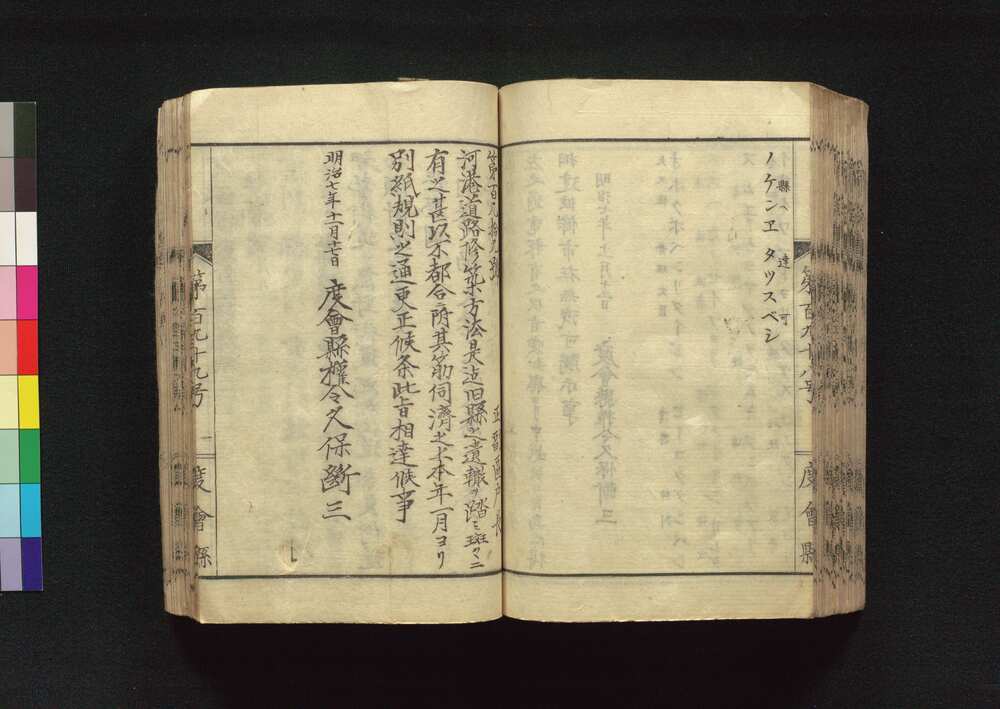 ノケンヱ タツスベシ
縣 達 可
第百九十八号
度會縣
第百九拾九號
正副區戸長
河港道路修築方法是迠旧縣之遺轍ヲ踏ミ斑々ニ
有之甚以不都合ニ附其筋伺済之上本年一月ヨリ
別紙規則之通更正候条此旨相達候事
明治七年十一月十七日 度會縣権令久保斷三
第百九十九号
一
度會縣